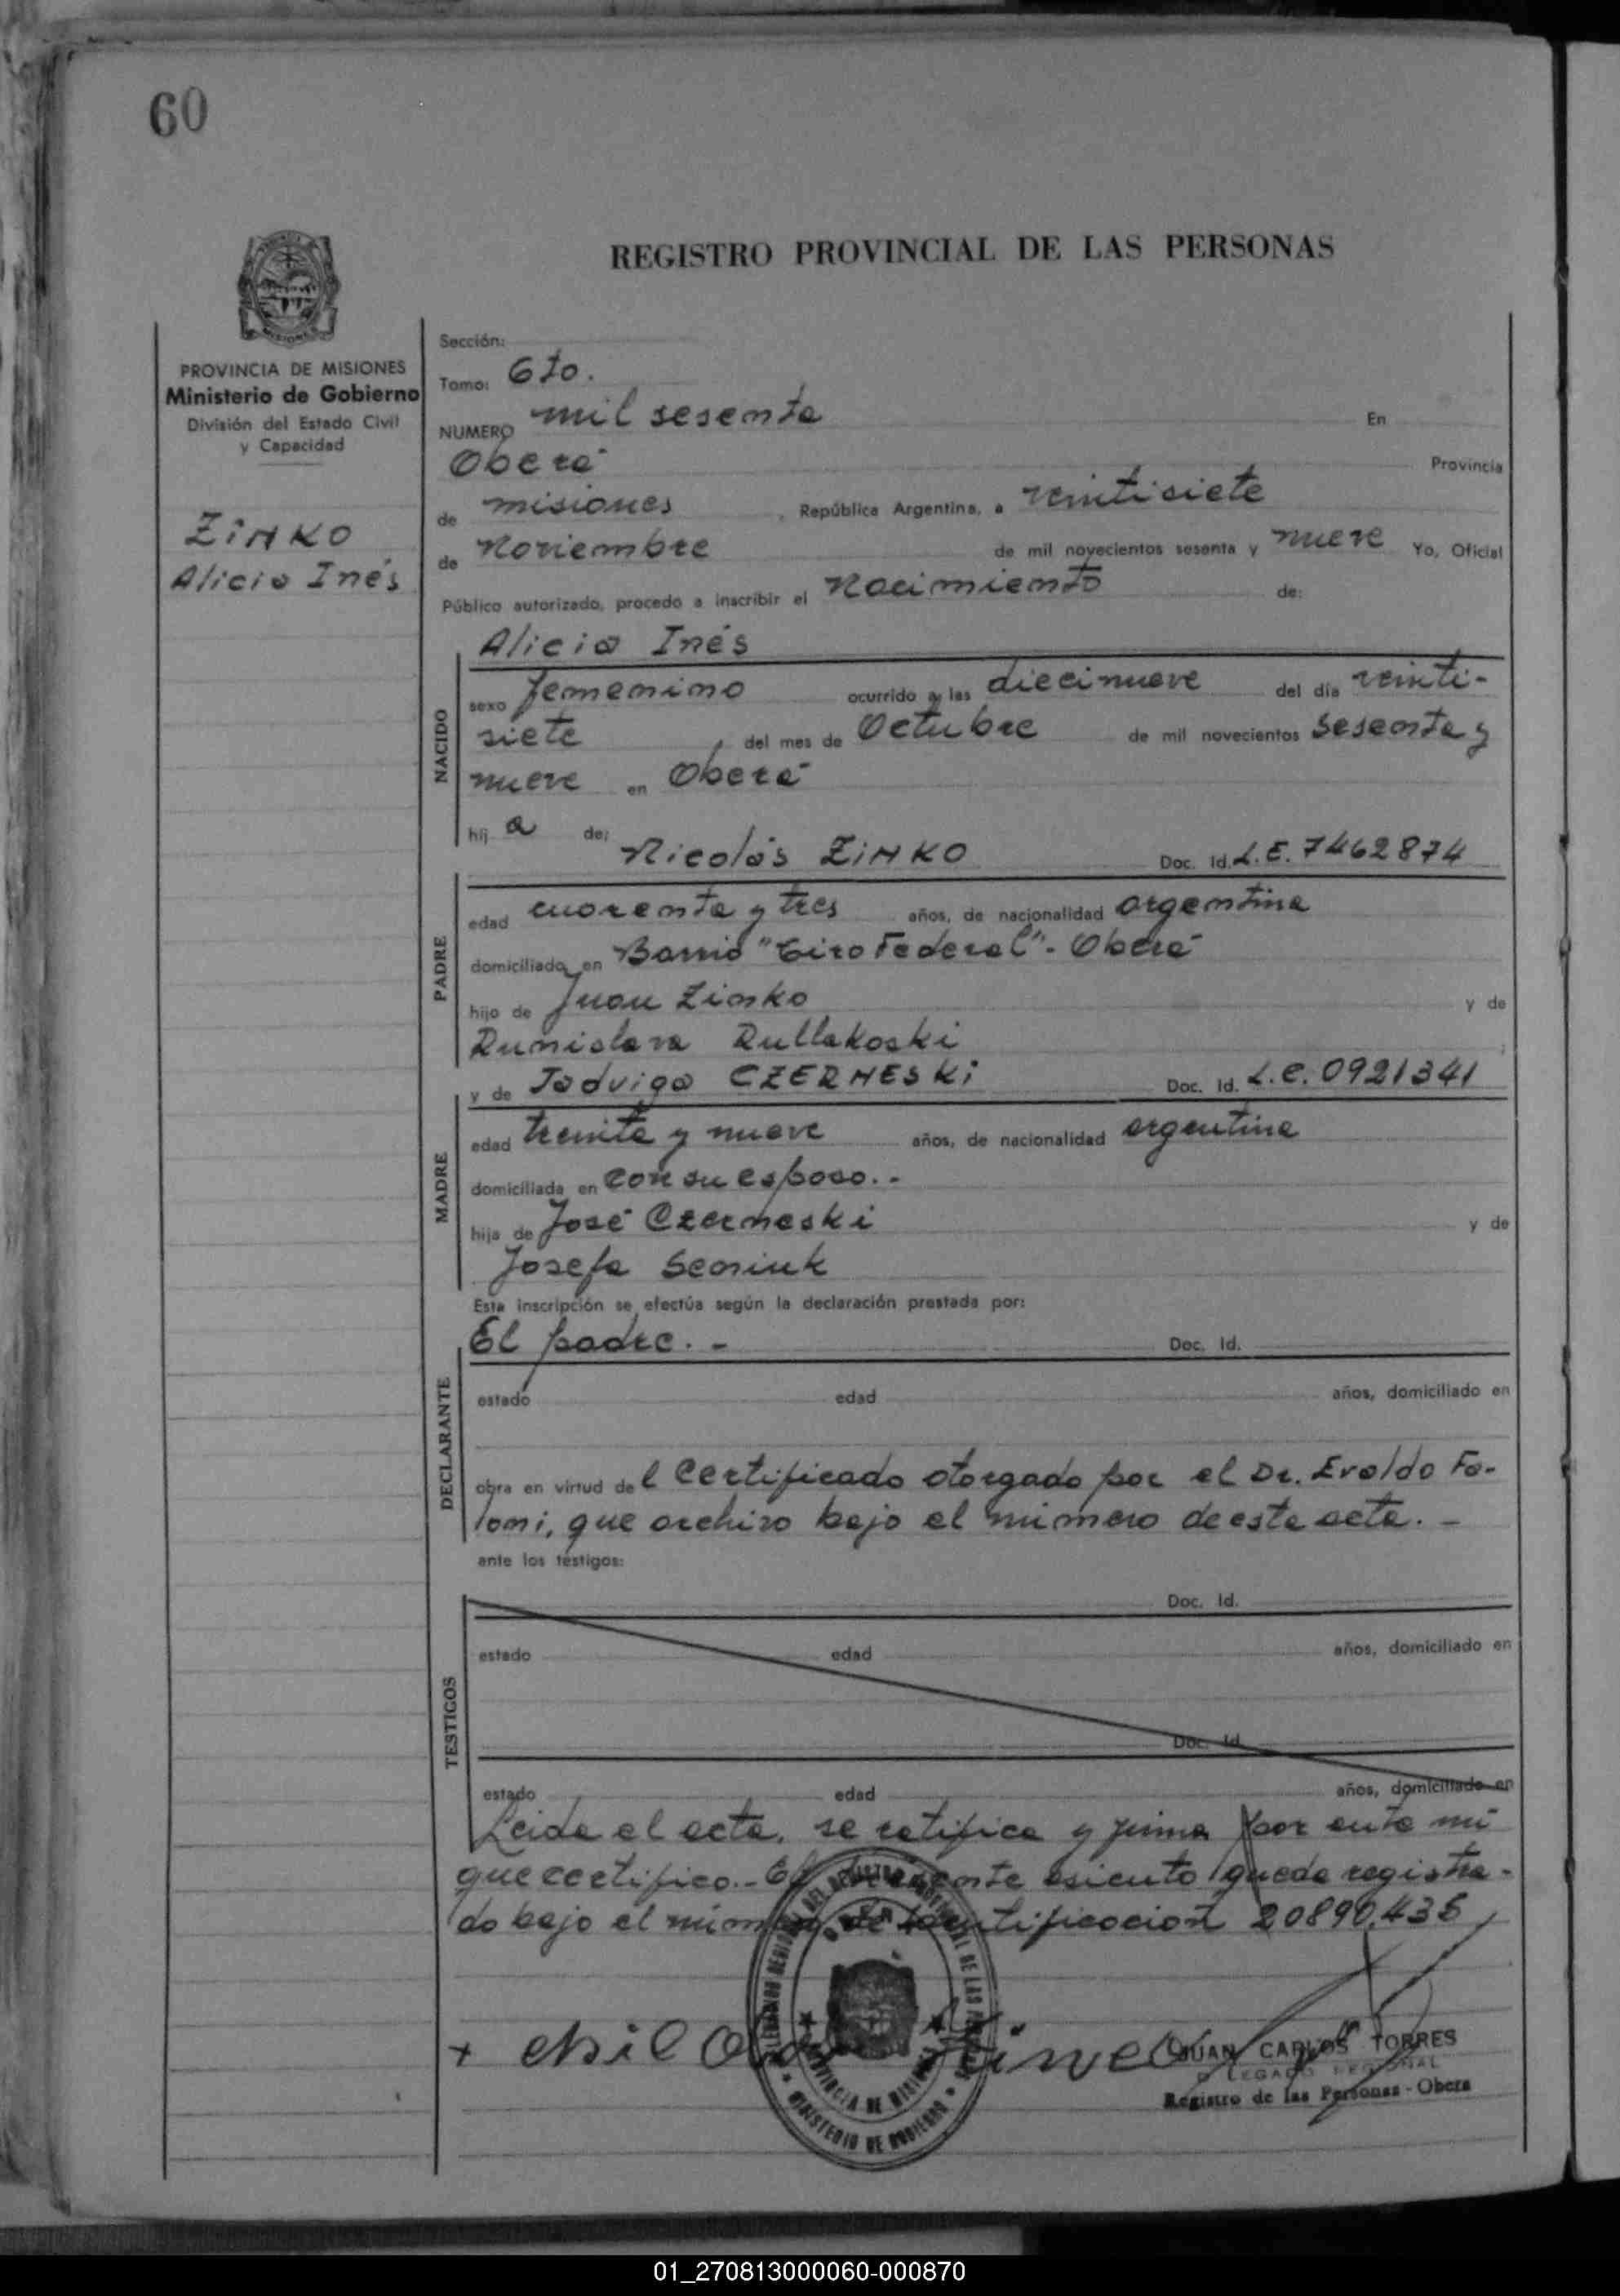 60
REGISTRO PROVINCIAL DE LAS PERSONAS
MISIONES
PROVINCIA DE MISIONES
Ministerio de Gobierno
División del Estado Civil
y Capacidad
ZINKO
Alicia Inés
Sección:
Tomo: 6to.
NUMERO mil sesenta En
Oberá Provincia
de misiones, República Argentina, a veintisiete
de Noviembre de mil novecientos sesenta y nueve Yo, Oficial
Público autorizado, procedo a inscribir el Nacimiento de:
Alicia Inés
NACIDO
sexo femenino ocurrido a las diecinueve del día veinti-
siete, del mes de Octubre de mil novecientos sesenta y
nueve en Oberá
hij a de: Nicolás ZINKO Doc. Id. L.E. 7462874
PADRE
edad cuarenta y tres años, de nacionalidad argentina
domiciliado en Barrio "Tiro Federal"- Oberá
hijo de Juan Zinko y de
Runislava Rullakoski;
y de Jadviga CZERNESKi Doc. Id. L.C. 0921341
MADRE
edad treinta y nueve años, de nacionalidad argentina
domiciliada en con su esposo.-
hija de José Czerneski y de
Josefa Seniuk
Esta inscripción se efectúa según la declaración prestada por:
El padre.- Doc. Id.
DECLARANTE
estado edad años, domiciliado en
obra en virtud del Certificado otorgado por el Dr. Evaldo Fa-
loni, que archivo bajo el número de este acta.-
ante los testigos:
Doc. Id.
TESTIGOS
estado edad años, domiciliado en
Doc. Id.
estado edad años, domiciliado en
Leida el acta, se ratifica y firma por ante mi
que certifico.- El presente asiento queda registra-
do bajo el número de identificación 20890.435
JUAN CARLOS TORRES
DELEGADO REGIONAL
Registro de las Personas - Obera
PROVINCIA DE MISIONES
MINISTERIO DE GOBIERNO
01_270813000060-000870